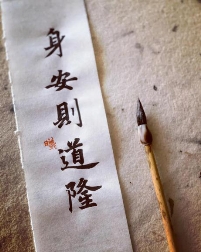 身安則道隆